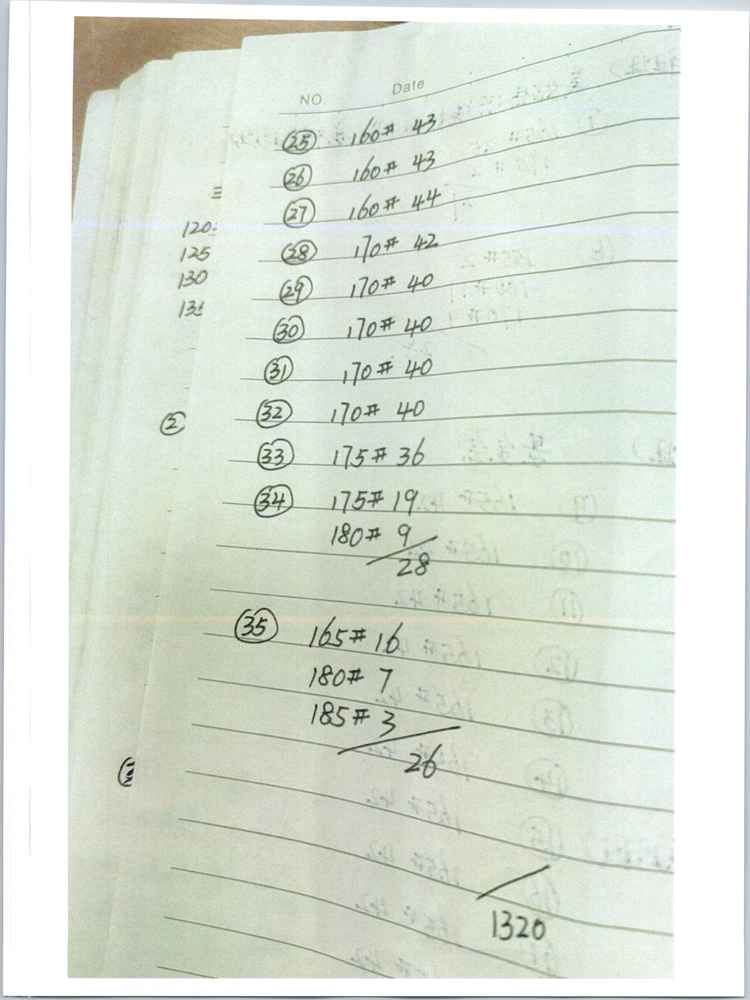 NO. Date
㉕ 160# 43
㉖ 160# 43
㉗ 160# 44
㉘ 170# 42
㉙ 170# 40
㉚ 170# 40
㉛ 170# 40
㉜ 170# 40
㉝ 175# 36
㉞ 175# 19
180# 9
28
㉟ 165# 16
180# 7
185# 3
26
1320
120
125
130
②